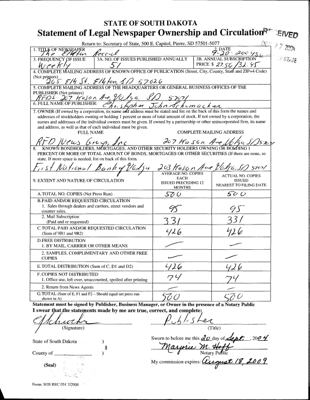 STATE OF SOUTH DAKOTA
Statement of Legal Newspaper Ownership and Circulation
Return to: Secretary of State, 500 E. Capitol, Pierre, SD 57501-5077
1. TITLE OF NEWSPAPER
DATE
The Elkton Record
2. FREQUENCY OF ISSUE
3A. NO. OF ISSUES PUBLISHED ANNUALLY
3B. ANNUAL SUBSCRIPTION
Weekly
51
PRICE $
4. COMPLETE MAILING ADDRESS OF KNOWN OFFICE OF PUBLICATION (Street, City, County, Staff and ZIP+4 Code)
(Not printers)
Elk St. Elkton SD 57026
5. COMPLETE MAILING ADDRESS OF THE HEADQUARTERS OR GENERAL BUSINESS OFFICES OF THE
PUBLISHER (Not printer)
6. FULL NAME OF PUBLISHER
Christopher John Schumacher
7. OWNER (If owned by a corporation, its name and address must be stated and on the back of this form the names and
addresses of stockholders owning or holding 1 percent or more of total amount of stock. If not owned by a corporation, the
names and addresses of the individual owners must be given. If owned by a partnership or other unincorporated firm, its name
and address, as well as that of each individual must be given.
FULL NAME
COMPLETE MAILING ADDRESS
RFD News Group, Inc
8. KNOWN BONDHOLDERS, MORTGAGES, AND OTHER SECURITY HOLDERS OWNING OR HOLDING 1
PERCENT OR MORE OF TOTAL AMOUNT OF BONDS, MORTGAGES OR OTHER SECURITIES (If there are none, so
state. If more space is needed, list on back of this form.
First National Bank
9. EXTENT AND NATURE OF CIRCULATION
AVERAGE NO. COPIES
EACH
ISSUED PRECEDING 12
MONTHS
ACTUAL NO. COPIES
ISSUED
NEAREST TO FILING DATE
A. TOTAL NO. COPIES (Net Press Run)
500
500
B. PAID AND/OR REQUESTED CIRCULATION
1. Sales through dealers and carriers, street vendors and
counter sales.
95
95
2. Mail Subscription
(Paid and or requested)
331
331
C. TOTAL PAID AND/OR REQUESTED CIRCULATION
(Sum of 9B1 and 9B2)
426
426
D. FREE DISTRIBUTION
1. BY MAIL, CARRIER OR OTHER MEANS
2. SAMPLES, COMPLIMENTARY AND OTHER FREE
COPIES
E. TOTAL DISTRIBUTION (Sum of C, D1 and D2)
426
426
F. COPIES NOT DISTRIBUTED
1. Office use, left over, unaccounted, spoiled after printing
74
74
2. Return from News Agents
G. TOTAL (Sum of E, F1 and F2 - Should equal net press run
shown in A)
500
500
Statement must be signed by Publisher, Business Manager, or Owner in the presence of a Notary Public
I swear that the statements made by me are true, correct, and complete:
Publisher
(Signature)
(Title)
State of South Dakota )
Sworn to before me this 20 day of Sept, 2004
County of )
Marjorie M. Hoff
Notary Public
(Seal)
My commission expires: August 18, 2009